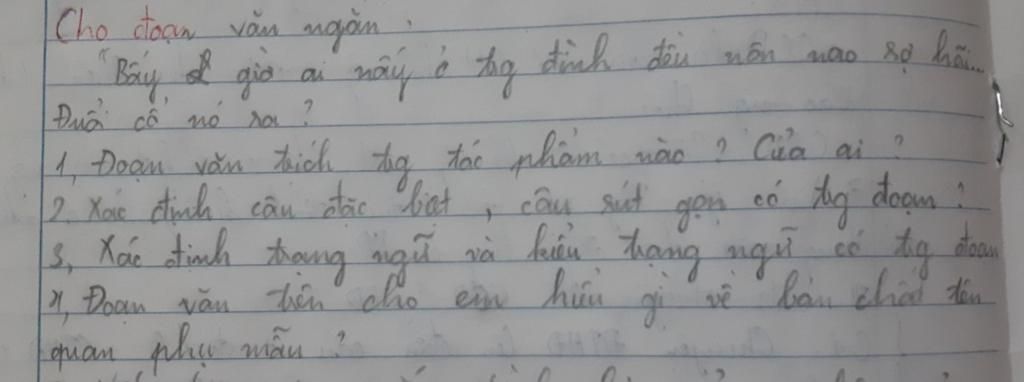 Cho đoạn văn ngắn:
"Bấy giờ ai nấy ở tg đình đều nôn nao sợ hãi...
Đuổi cổ nó ra?
1, Đoạn văn trích tg tác phẩm nào? Của ai?
2, Xác định câu đặc biệt, câu rút gọn có tg đoạn?
3, Xác định trạng ngữ và kiểu trạng ngữ có tg đoạn
4, Đoạn văn trên cho em hiểu gì về bản chất tên
quan phụ mẫu?